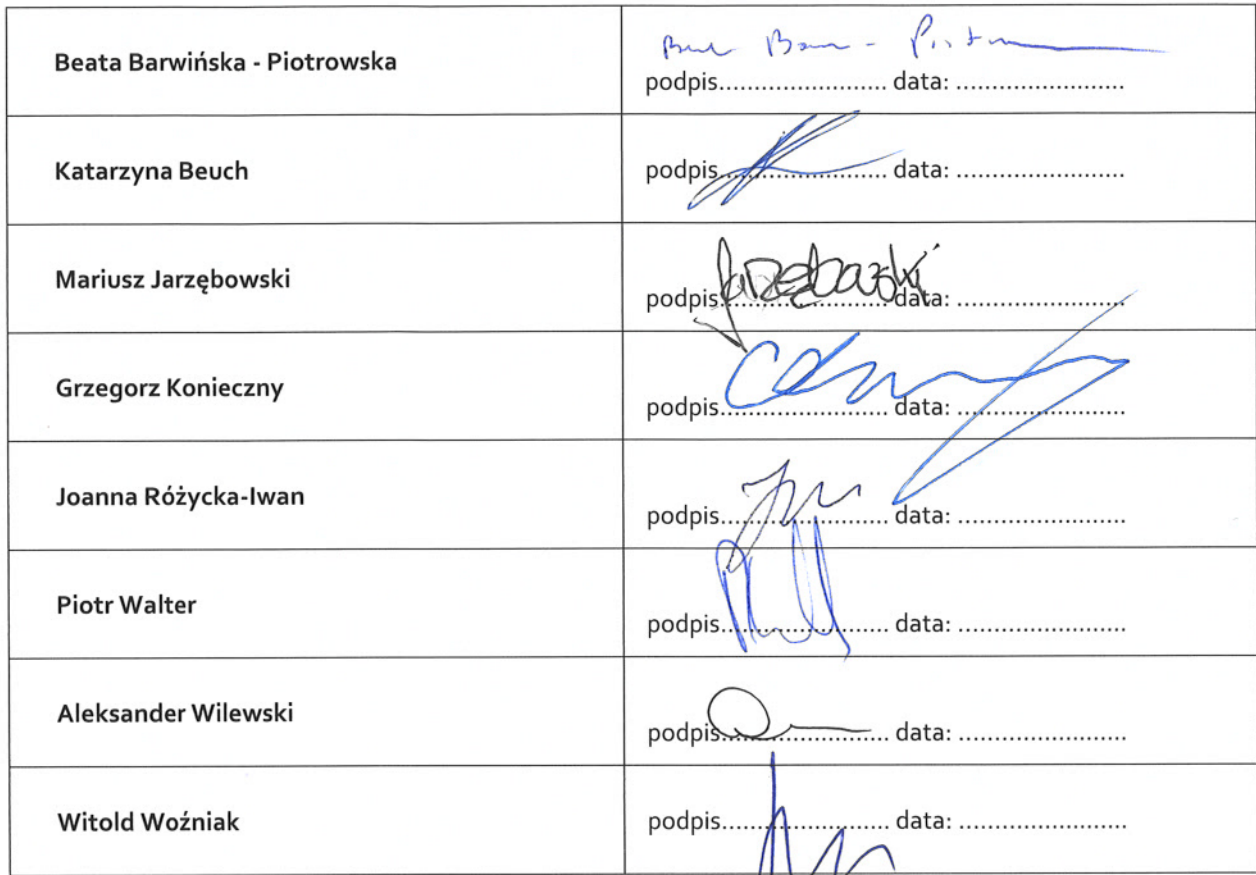 Beata Barwińska - Piotrowska
podpis........................ data: ........................
Katarzyna Beuch
podpis........................ data: ........................
Mariusz Jarzębowski
Jarzębowski
podpis........................ data: ........................
Grzegorz Konieczny
podpis........................ data: ........................
Joanna Różycka-Iwan
podpis........................ data: ........................
Piotr Walter
podpis........................ data: ........................
Aleksander Wilewski
podpis........................ data: ........................
Witold Woźniak
podpis........................ data: ........................